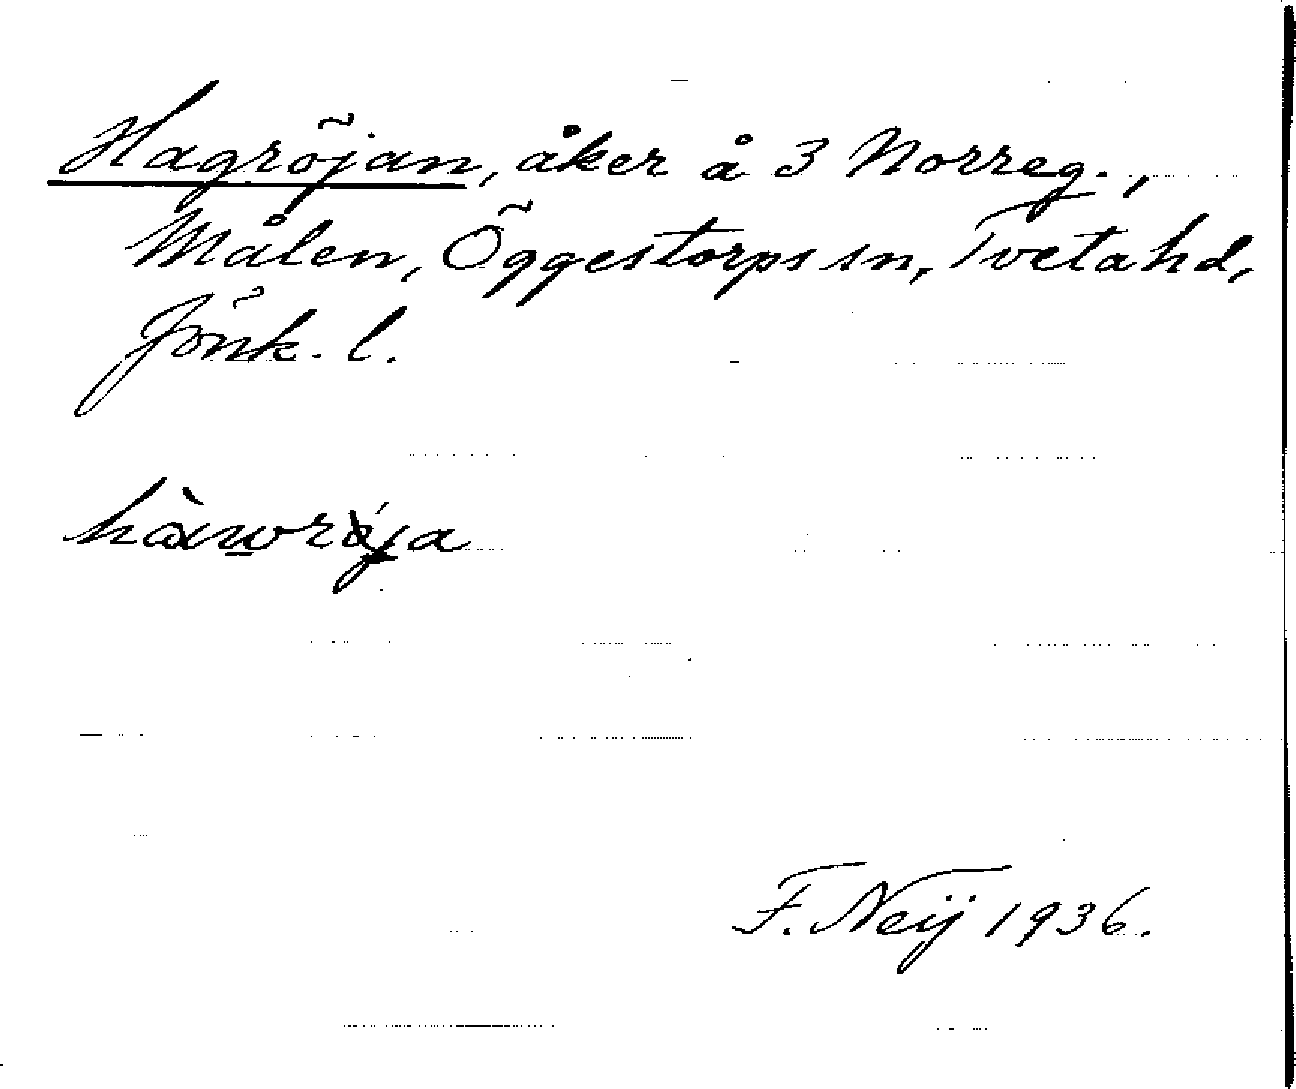 Hagröjan, åker å 3 Norreg.,
Målen, Öggestorps sn, Tveta hd,
Jönk. l.
F. Neij 1936.